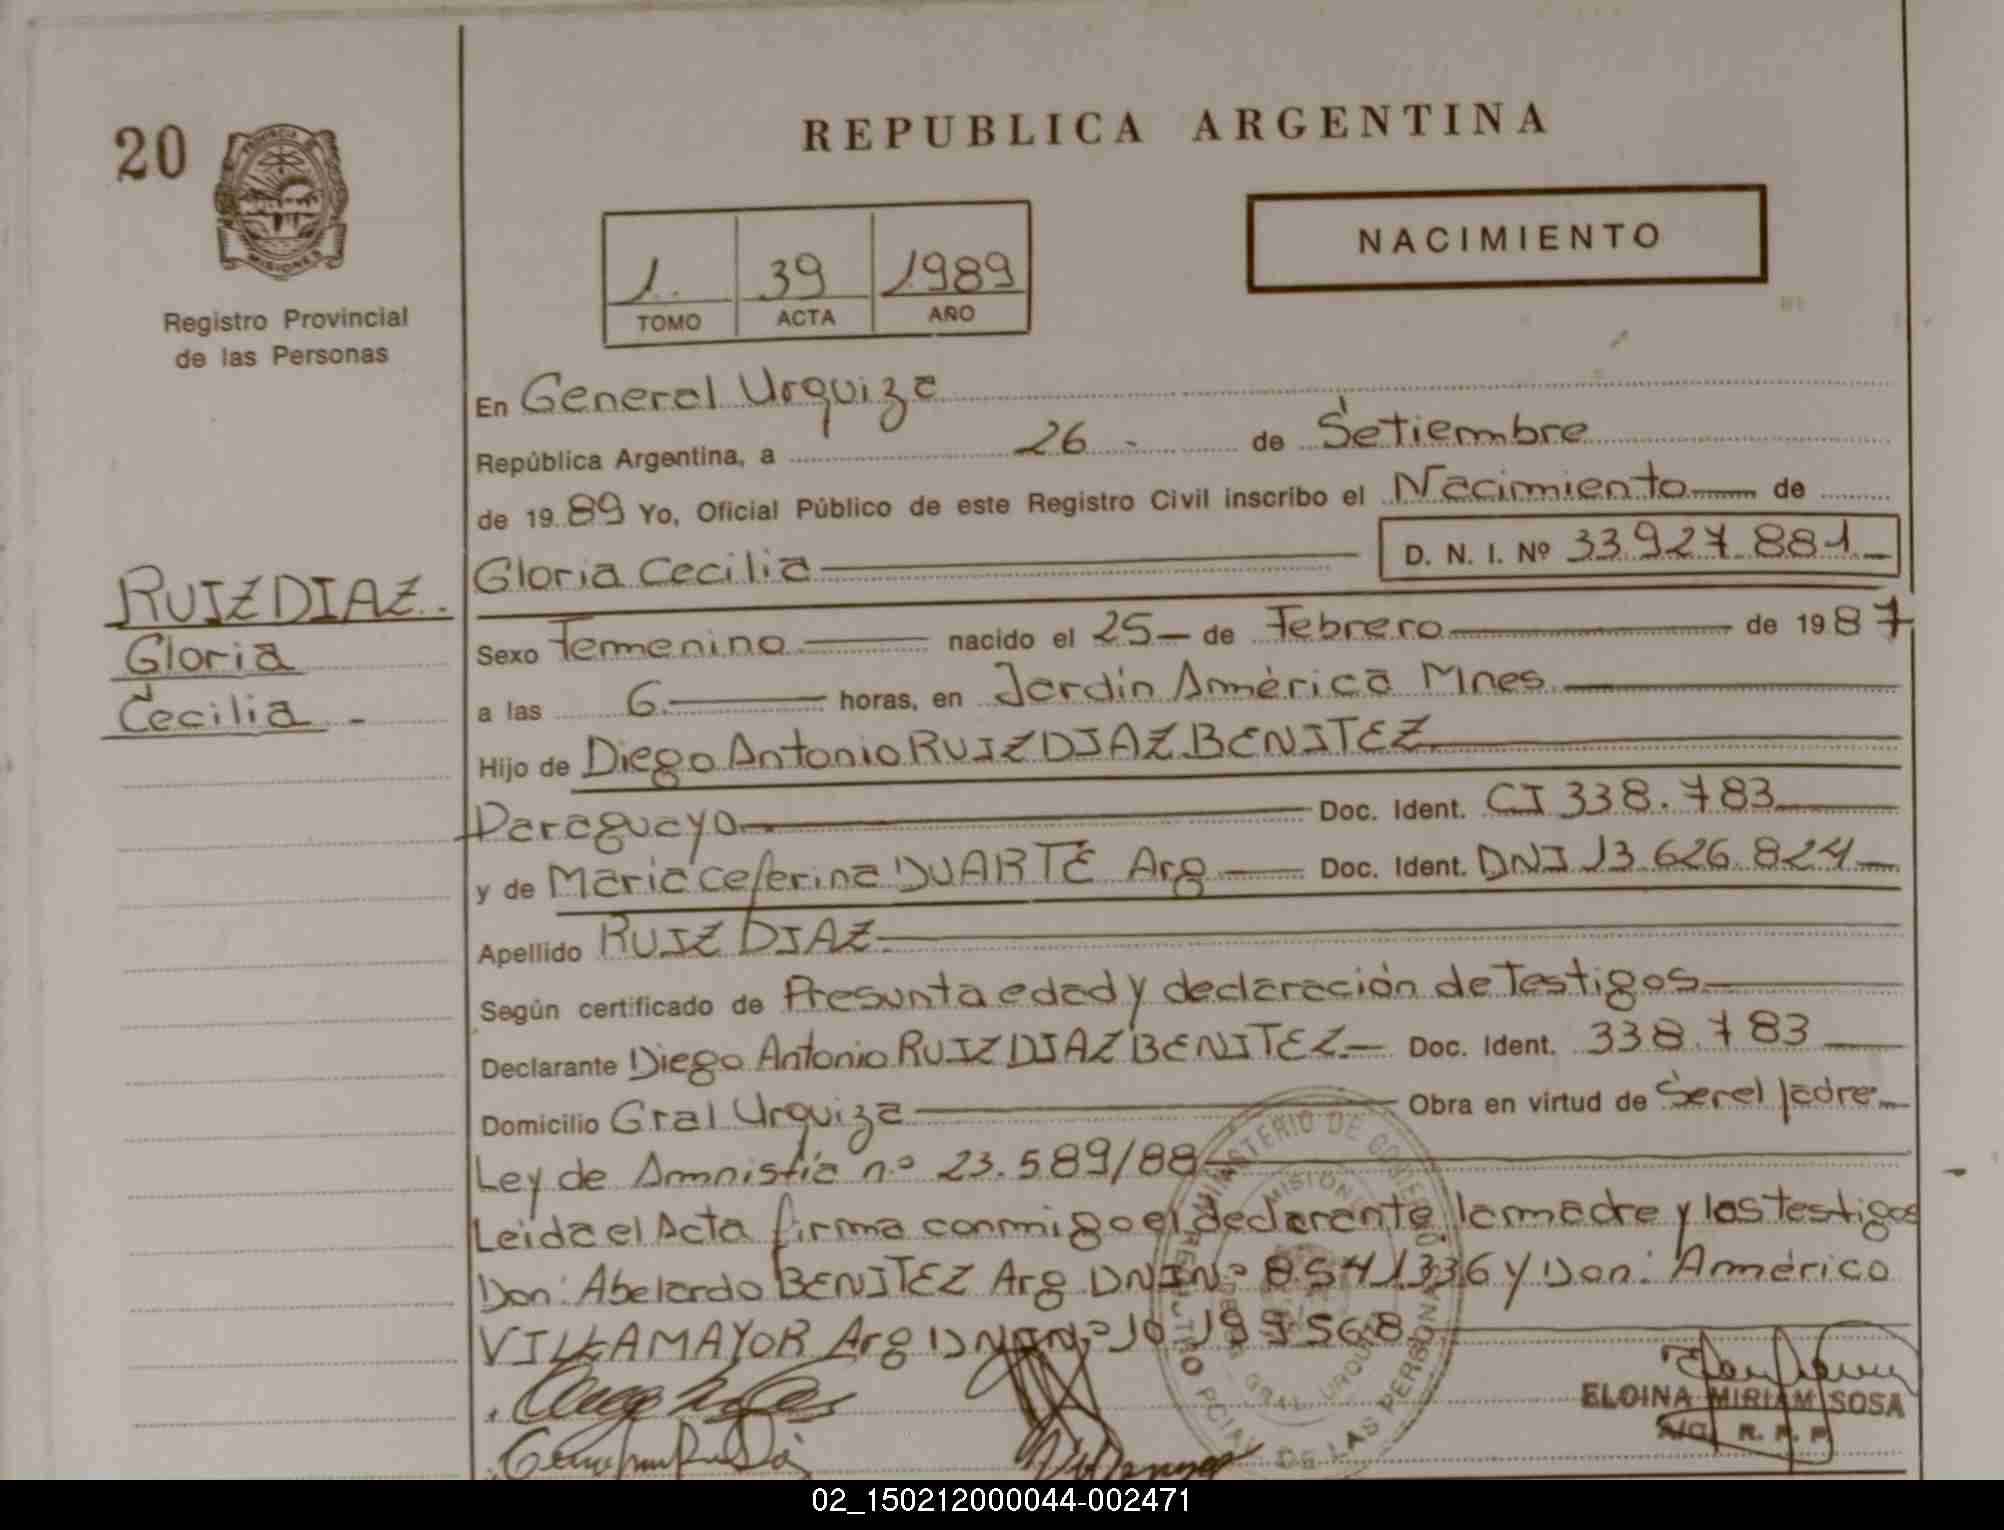 20
PROVINCIA
MISIONES
Registro Provincial
de las Personas
REPUBLICA ARGENTINA
1. 39 1989
TOMO ACTA AÑO
NACIMIENTO
En General Urquiza
República Argentina, a 26 - de Setiembre
de 1989 Yo, Oficial Público de este Registro Civil inscribo el Nacimiento de
Gloria Cecilia D. N. I. Nº 33.927.881
RUIZ DIAZ.
Gloria
Cecilia -
Sexo Femenino nacido el 25 de Febrero de 1987
a las 6 horas, en Jardín América Mnes
Hijo de Diego Antonio RUIZ DIAZ BENITEZ
Paraguayo Doc. Ident. CI 338.783
y de Maria Ceferina DUARTE Arg Doc. Ident. DNI 13.626.824
Apellido RUIZ DIAZ
Según certificado de Presunta edad y declaración de Testigos
Declarante Diego Antonio RUIZ DIAZ BENITEZ Doc. Ident. 338.783
Domicilio Gral Urquiza Obra en virtud de Ser el padre
Ley de Amnistía nº 23.589/88
Leida el Acta firma conmigo el declarante la madre y los testigos
Don: Abelardo BENITEZ Arg DNI Nº 8541336 y Don: Américo
VILLAMAYOR Arg DNI Nº 10.199568
MINISTERIO DE GOBIERNO
MISIONES
GRAL. URQUIZA
REGISTRO PCIAL DE LAS PERSONAS
ELOINA MIRIAM SOSA
A/C R. P. P.
02_150212000044-002471